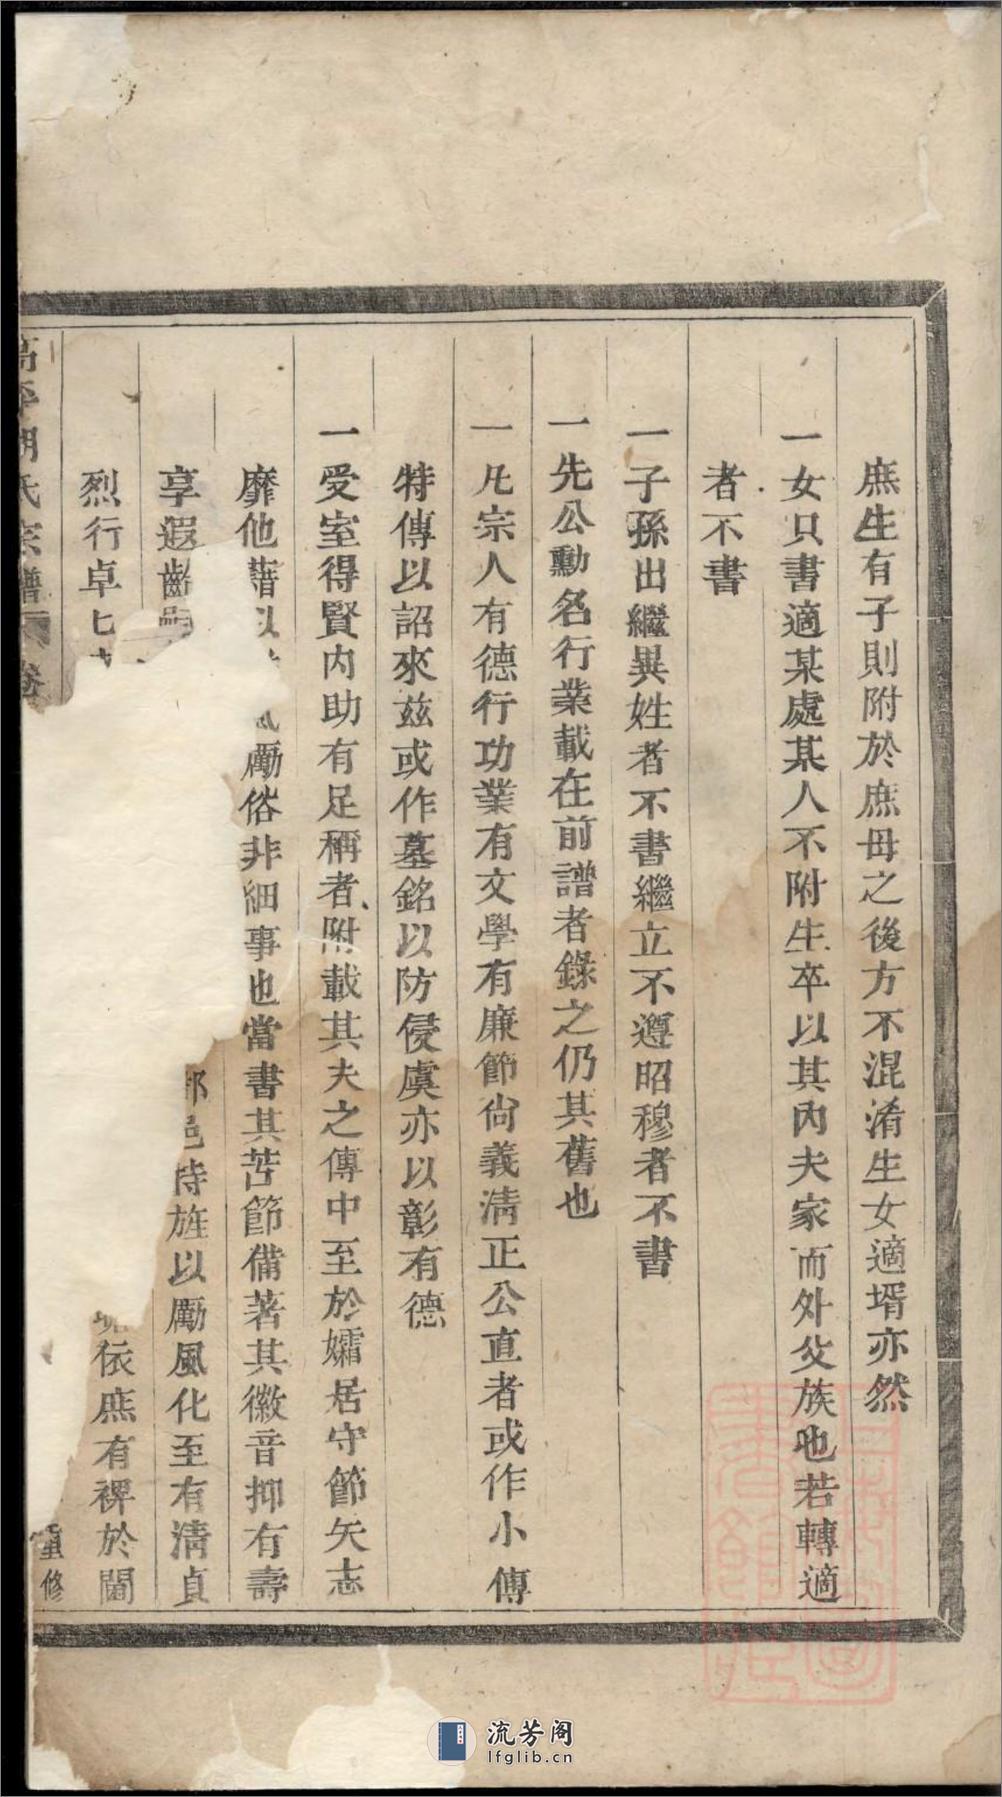 庶生有子則附於庶母之後方不混淆生女適壻亦然
一女只書適某處某人不附生卒以其內夫家而外父族也若轉適
者不書
一子孫出繼異姓者不書繼立不遵昭穆者不書
一先公勳名行業載在前譜者錄之仍其舊也
一凡宗人有德行功業有文學有廉節尙義清正公直者或作小傳
特傳以詔來茲或作墓銘以防侵虞亦以彰有德
一受室得賢內助有足稱者附載其夫之傳中至於孀居守節矢志
靡他藉以 勵俗非細事也當書其苦節備著其徽音抑有壽
享遐齡 邑待旌以勵風化至有清貞
烈行卓 依庶有裨於閫
氏宗譜 卷
重修
流芳阁
lfglib.cn